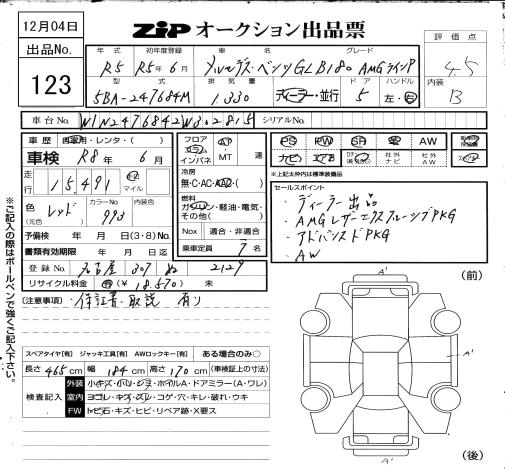 12月04日
ZiP オークション出品票
出品No.
123
年式 初年度登録 車名 グレード
R5 R5年6月 メルセデス・ベンツGLB180 AMGラインP
型式 排気量 ドア ハンドル
5BA-247684M 1.330 ディーラー・並行 5 左・右
評価点
4.5
内装
B
車台No. W1N2476842W302815 シリアルNo.
車歴 自家用・レンタ・( )
車検 R8年6月
走行 15,491 km マイル
色(元色) レッド カラーNo. 993 内装色
予備検 年 月 日(3・8)Mo.
書類有効期限 年 月 日
登録No. 名古屋 307 ぬ 2129
リサイクル料金 (¥18.570) 未
(注意事項) 保証書・取説 有り
フロア コラム インパネ AT MT 速
冷房 無・C・AC・AAC・( )
燃料 ガソリン・軽油・電気・その他( )
Nox 適合・非適合
乗車定員 7名
PS PW SR AW
ナビ 社外ナビ 社外AW
※上記太枠内は標準装備品
セールスポイント
・ディーラー出品
・AMGレザーエクスクルーシブPKG
・アドバンスドPKG
・AW
スペアタイヤ[有] ジャッキ工具[有] AWロックキー[有] ある場合のみ○
長さ465cm 幅184cm 高さ170cm (車検証上の寸法)
検査記入
外装 小キズ・ハリ・ジミ・ホイルA・ドアミラー(A・ワレ)
室内 ヨゴレ・キズ・スレ・コゲ・穴・キレ・破れ・ウキ
FW トビ石・キズ・ヒビ・リペア跡・X要ス
※ご記入の際はボールペンで強くご記入下さい。
(前)
A'
A'
A'
(後)